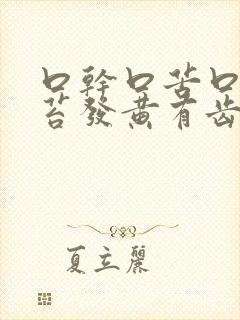 口幹口苦口
苔發黃有齒
夏立麗